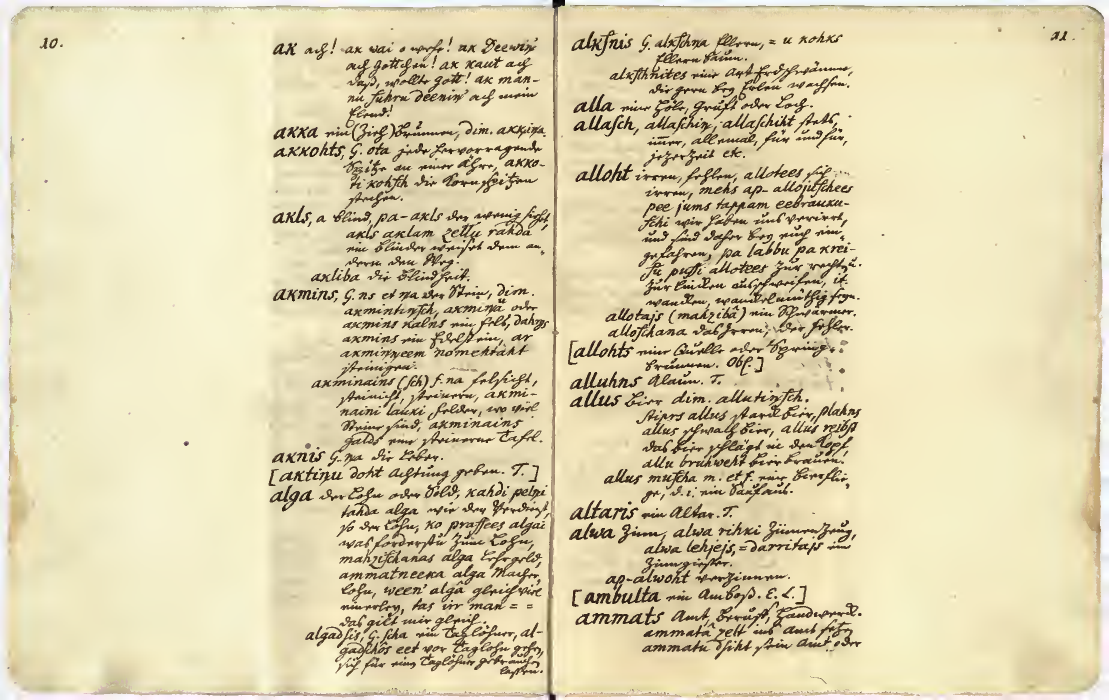 10.
ak ach! ak wai o wehe! ak Deewiņ
ach Gottchen! ak kaut ach
daß, wollte Gott! ak man-
nu suhru deeniņ ach mein
Elend!
akka ein (Zieh) Brunnen, dim. akkiņa.
akkohts, G. ota jede hervorragende
Spitze an einer Ähre, akko-
ti kohsch die Kornspitzen
stechen.
akls, a blind, pa-akls der wenig sieht,
akls aklam zellu rahda
ein Blinder weiset dem an-
dern den Weg.
akliba die Blindheit.
akmins, G. ns et ņa der Stein, dim.
akmintiņsch, akmiņā oder
akmins kalns ein Fels, dahrgs
akmins ein Edelstein, ar
akmiņņeem nomehtaht
steinigen.
akminains (sch) f. na felsicht,
steinicht, steinern, akmi-
naini lauki Felder, wo viel
Steine sind, akminains
galds eine steinerne Tafel.
aknis G. ņa die Leber.
[aktiņu doht Achtung geben. T.]
alga der Lohn oder Sold, kahdi pelņi
tahda alga wie der Verdienst,
so der Lohn, ko prassees algai
was forderstu zum Lohn,
mahzischanas alga Lehrgeld,
ammatneeka alga Macher-
lohn, ween' algā gleichviel
einerley, tas irr man = =
das gilt mir gleich.
algadsis, G. scha ein Taglöhner, al-
gadschōs eet vor Taglohn gehn,
sich für einen Taglöhner gebrauchen
lassen.
alksnis G. alkschņa Ellern, = u kohks
Ellern Baum.
alkschnites eine Art Erdschwämme,
die gern bey Erlen wachsen.
alla eine Höle, Gruft oder Loch.
allasch, allaschiņ, allaschikt stets,
immer, allemal, für und für,
jezerzeit etc.
alloht irren, fehlen, allotees sich
irren, mehs ap-allojuschees
pee jums tappam eebrauku-
schi wir haben uns verirrt,
und sind daher bey euch ein-
gefahren, pa labbu pa krei-
su pussi allotees zur rechten u.
zur linken ausschweifen, it.
wanken, wankelmüthig seyn.
allotajs (mahzibâ) ein Schwärmer.
alloschana das Irren, der Fehler.
[allohts eine Quelle oder Spring-
brunnen. Obs.]
alluhns Alaun. T.
allus Bier dim. allutiņsch.
stiprs allus stark Bier, plahns
allus schwach Bier, allus reibst
das Bier schlägt in den Kopf,
allu bruhweht Bier brauen.
allus muscha m. et f. eine Bierflie-
ge, d. i. ein Saufaus.
altaris ein Altar. T.
alwa Zinn, alwa rihki Zinnen Zeug,
alwa lehjejs, = darritajs ein
Zinngießer.
ap-alwoht verzinnen.
[ambulta ein Amboß. E. L.]
ammats Amt, Beruff, Handwerk.
ammatâ zelt ins Amt setzen
ammatu dsiht sein Amt oder
11.